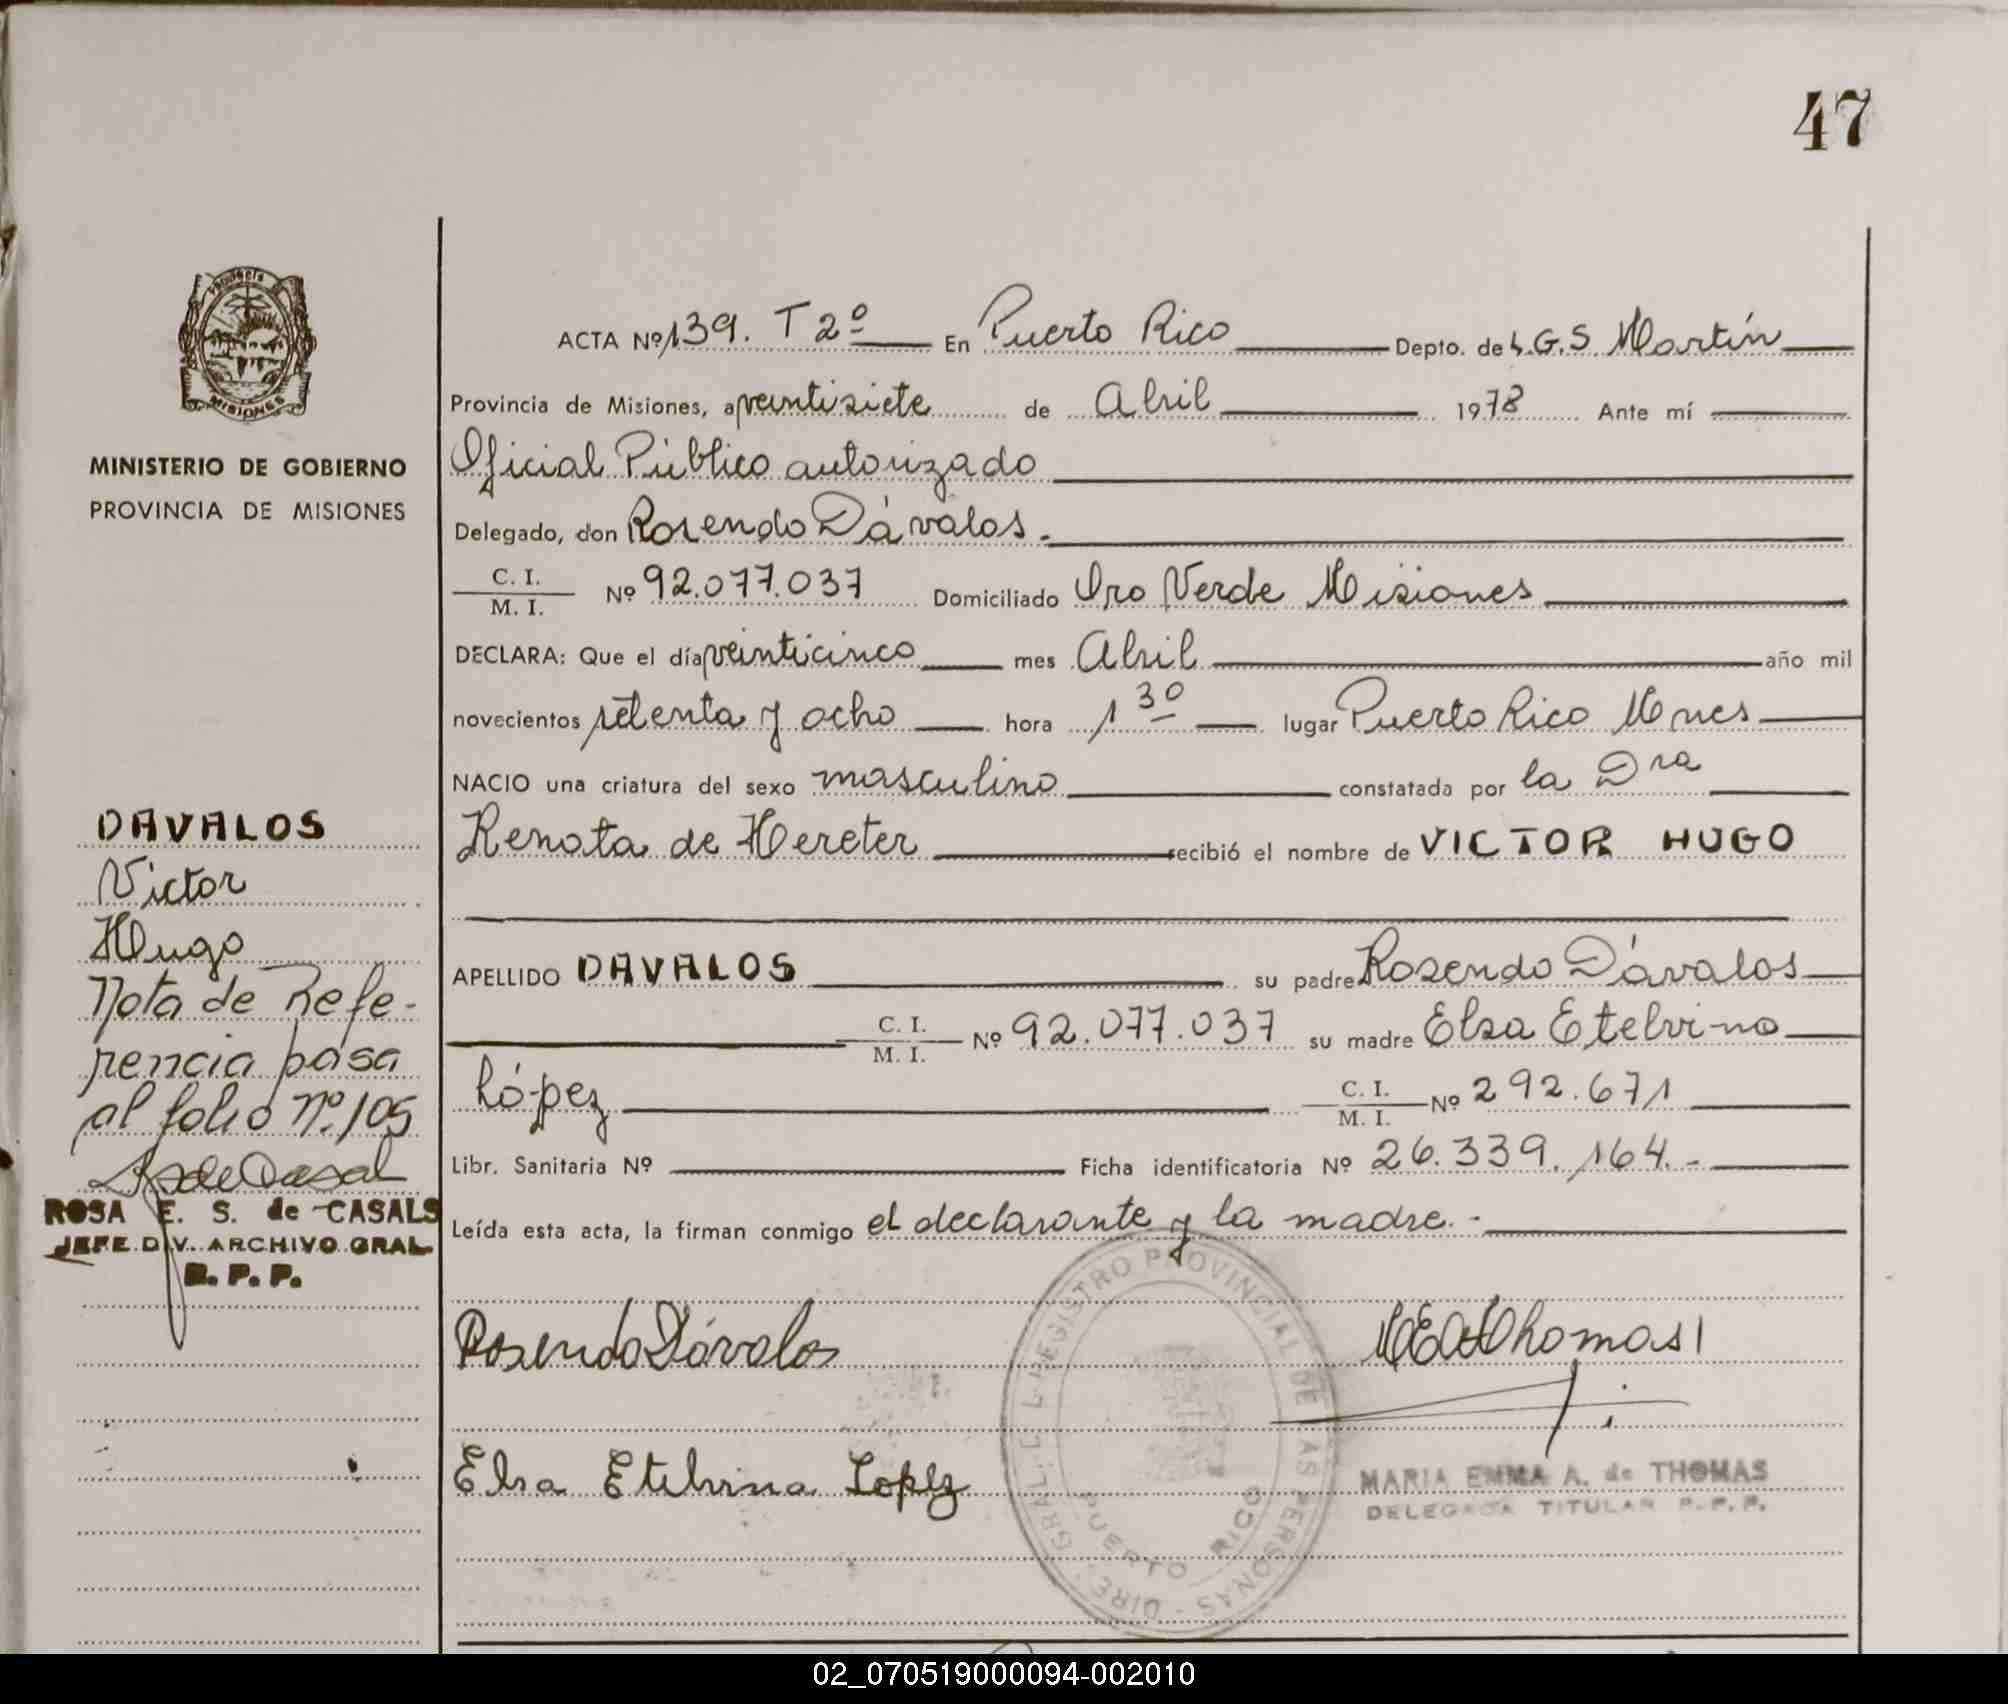 47
PROVINCIA
MISIONES
MINISTERIO DE GOBIERNO
PROVINCIA DE MISIONES
ACTA Nº 139. T 2º En Puerto Rico Depto. de L.G.S. Martín
Provincia de Misiones, a veintisiete de Abril 1978 Ante mí
Oficial Público autorizado
Delegado, don Rosendo Dávalos.
C. I.
M. I. Nº 92.077.037 Domiciliado Oro Verde Misiones
DECLARA: Que el día veinticinco mes Abril año mil
novecientos setenta y ocho hora 1 30 lugar Puerto Rico Mnes
NACIO una criatura del sexo masculino constatada por la Dra
Renata de Hereter recibió el nombre de VICTOR HUGO
APELLIDO DAVALOS su padre Rosendo Dávalos
C. I.
M. I. Nº 92.077.037 su madre Elsa Etelvina
López C. I.
M. I. Nº 292.671
Libr. Sanitaria Nº Ficha identificatoria Nº 26.339.164.-
Leída esta acta, la firman conmigo el declarante y la madre.-
Rosendo Dávalos
Elsa Etelvina Lopez
MARIA EMMA A. de THOMAS
DELEGADA TITULAR R.P.P.
DIRE. GRAL. DEL REGISTRO PROVINCIAL DE LAS PERSONAS
PUERTO RICO
DAVALOS
Victor
Hugo
Nota de Refe-
rencia pasa
al folio Nº.105
ROSA E. S. de CASALS
JEFE DIV. ARCHIVO GRAL
R. P. P.
02_070519000094-002010